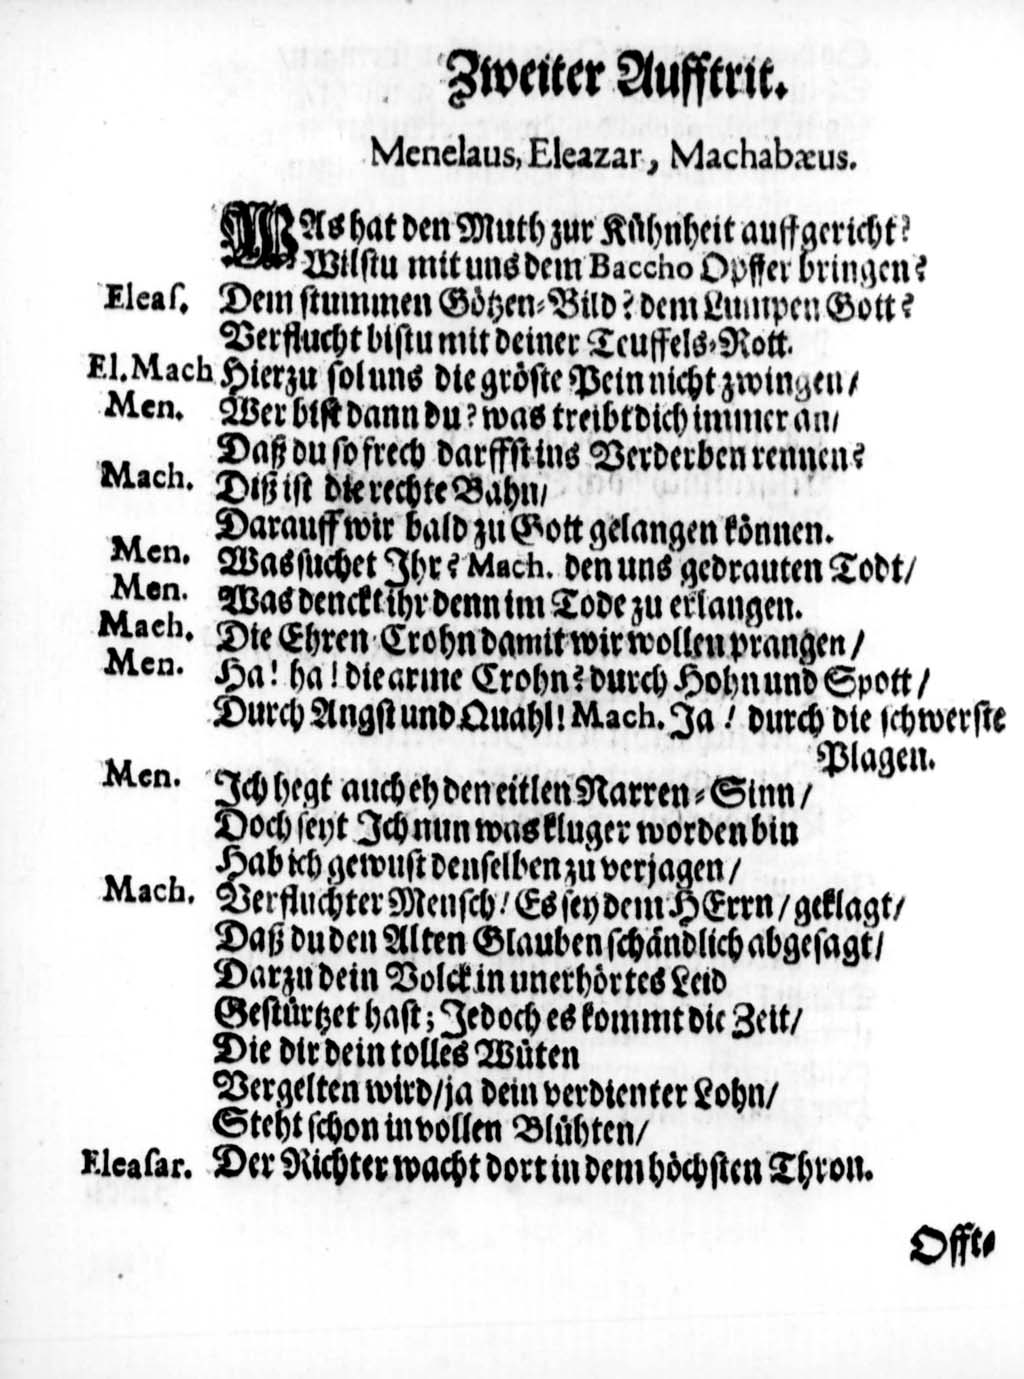 Zweiter Aufftrit.
Menelaus, Eleazar, Machabæus.
WAs hat den Muth zur Kühnheit auffgericht?
Wilstu mit uns dem Baccho Opffer bringen?
Eleaſ. Dem stummen Götzen-Bild? dem Lumpen Gott?
Verflucht bistu mit deiner Teuffels-Rott.
El. Mach Hierzu sol uns die gröste Pein nicht zwingen/
Men. Wer bist dann du? was treibt dich immer an/
Daß du so frech darffst ins Verderben rennen?
Mach. Diß ist die rechte Bahn/
Darauff wir bald zu Gott gelangen können.
Men. Was suchet Ihr? Mach. den uns gedrauten Todt/
Men. Was denckt ihr denn im Tode zu erlangen.
Mach. Die Ehren Crohn damit wir wollen prangen/
Men. Ha! ha! die arme Crohn? durch Hohn und Spott/
Durch Angst und Quahl! Mach. Ja! durch die schwerste
Plagen.
Men. Ich hegt auch eh den eitlen Narren-Sinn/
Doch seyt Ich nun was kluger worden bin
Hab ich gewust denselben zu verjagen/
Mach. Verfluchter Mensch! Es sey dem HErrn/geklagt/
Daß du den Alten Glauben schändlich abgesagt/
Darzu dein Volck in unerhörtes Leid
Gestürtzet hast; Jedoch es kommt die Zeit/
Die dir dein tolles Wüten
Vergelten wird/ja dein verdienter Lohn/
Steht schon in vollen Blühten/
Eleaſar. Der Richter wacht dort in dem höchsten Thron.
Offt-